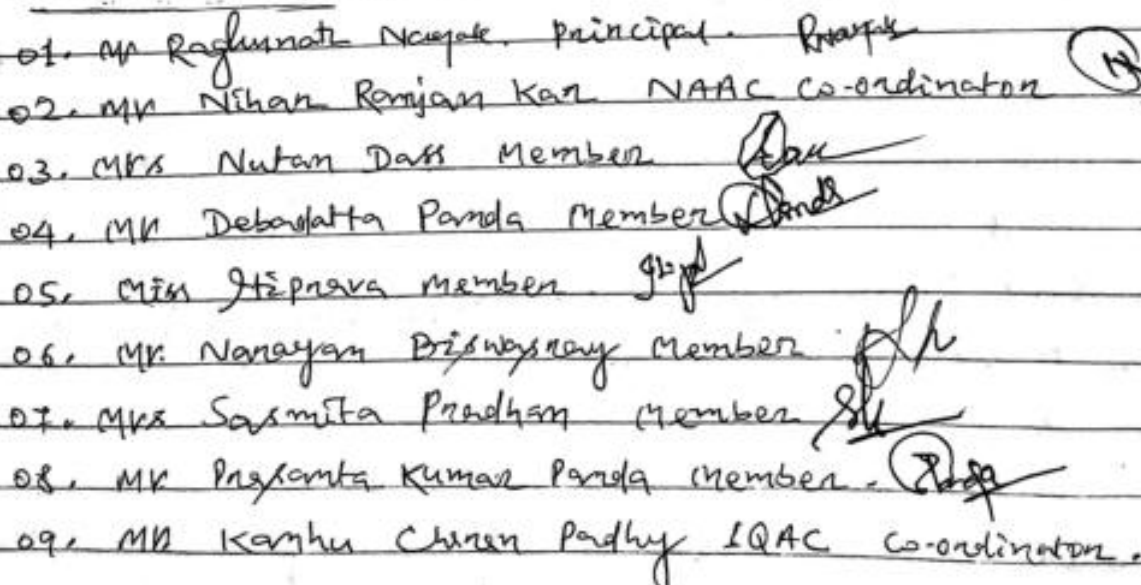 01. Mr Raghunath Nayak. Principal. RNayak
02. Mr Nihar Ranjan Kar NAAC Co-ordinator
03. Mrs Nutan Dass Member Dass
04. Mr Debadatta Panda Member Panda
05. Miss Itiprava Member.
06. Mr. Narayan Biswasray Member
07. Mrs Sasmita Pradhan Member
08. Mr Prasanta Kumar Panda Member. Panda
09. Mr Kanhu Charan Padhy IQAC Co-ordinator.